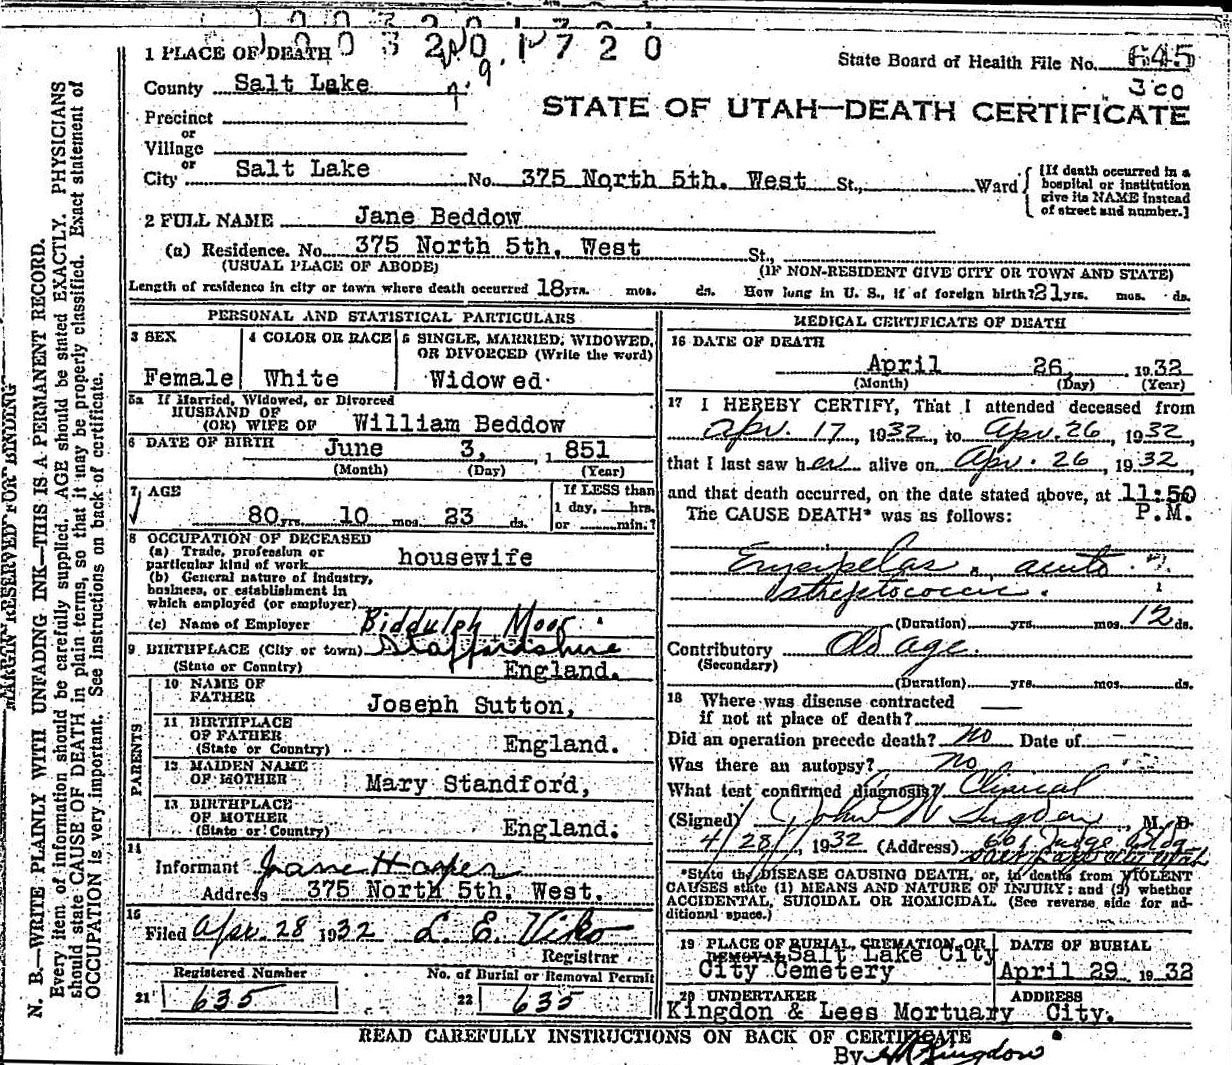 1003201720
1 PLACE OF DEATH
State Board of Health File No. 645
300
County Salt Lake
STATE OF UTAH—DEATH CERTIFICATE
Precinct
or
Village
or
City Salt Lake No. 375 North 5th. West St., Ward
[If death occurred in a
hospital or institution
give its NAME instead
of street and number.]
2 FULL NAME Jane Beddow
(a) Residence. No. 375 North 5th, West St.,
(USUAL PLACE OF ABODE) (IF NON-RESIDENT GIVE CITY OR TOWN AND STATE)
Length of residence in city or town where death occurred 18 yrs. mos. ds. How long in U. S., if of foreign birth? 21 yrs. mos. ds.
PERSONAL AND STATISTICAL PARTICULARS
3 SEX
Female
4 COLOR OR RACE
White
5 SINGLE, MARRIED, WIDOWED,
OR DIVORCED (Write the word)
Widowed
5a If Married, Widowed, or Divorced
HUSBAND OF
(OR) WIFE OF William Beddow
6 DATE OF BIRTH June 3, 1851
(Month) (Day) (Year)
7 AGE
80 yrs. 10 mos. 23 ds.
If LESS than
1 day, hrs.
or min.?
8 OCCUPATION OF DECEASED
(a) Trade, profession or
particular kind of work housewife
(b) General nature of industry,
business, or establishment in
which employed (or employer)
(c) Name of Employer
Biddulph Moor
9 BIRTHPLACE (City or town) Staffordshire
(State or Country) England.
PARENTS
10 NAME OF
FATHER Joseph Sutton,
11 BIRTHPLACE
OF FATHER
(State or Country) England.
12 MAIDEN NAME
OF MOTHER Mary Standford,
13 BIRTHPLACE
OF MOTHER
(State or Country) England.
14
Informant Jane Harper
Address 375 North 5th, West.
15
Filed Apr. 28 1932 L. E. Viko
Registrar
Registered Number
21 635
No. of Burial or Removal Permit
22 635
MEDICAL CERTIFICATE OF DEATH
16 DATE OF DEATH
April 26, 1932
(Month) (Day) (Year)
17 I HEREBY CERTIFY, That I attended deceased from
Apr. 17, 1932, to Apr. 26, 1932,
that I last saw her alive on Apr. 26, 1932,
and that death occurred, on the date stated above, at 11:50
The CAUSE DEATH* was as follows: P.M.
Erysipelas, acute
streptococcic.
(Duration) yrs. mos. 12 ds.
Contributory Old age.
(Secondary)
(Duration) yrs. mos. ds.
18 Where was disease contracted
if not at place of death?
Did an operation precede death? no Date of —
Was there an autopsy? no
What test confirmed diagnosis? Clinical
(Signed) John N Sugden, M. D.
4/28/, 1932 (Address) 601 Judge Bldg
Salt Lake City Utah
*State the DISEASE CAUSING DEATH, or, in deaths from VIOLENT
CAUSES state (1) MEANS AND NATURE OF INJURY; and (2) whether
ACCIDENTAL, SUICIDAL OR HOMICIDAL. (See reverse side for ad-
ditional space.)
19 PLACE OF BURIAL, CREMATION, OR
REMOVAL Salt Lake City
City Cemetery
DATE OF BURIAL
April 29 1932
20 UNDERTAKER ADDRESS
Kingdon & Lees Mortuary City.
READ CAREFULLY INSTRUCTIONS ON BACK OF CERTIFICATE
By Kingdon
MARGIN RESERVED FOR BINDING
N. B.—WRITE PLAINLY WITH UNFADING INK—THIS IS A PERMANENT RECORD.
Every item of information should be carefully supplied. AGE should be stated EXACTLY. PHYSICIANS
should state CAUSE OF DEATH in plain terms, so that it may be properly classified. Exact statement of
OCCUPATION is very important. See instructions on back of certificate.